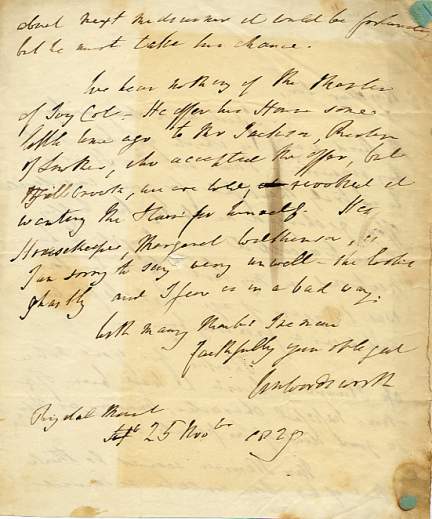 about next midsummer it would be fortunate
but he must take his chance.
We hear nothing of the Master
of Ivy Cot - He offer his House some
little time ago to Mr Jackson, 
of who accepted the offer, but
we are told, revoked it
wanting the for himself. His
Housekeeper, Margaret Wilkinson, is
I am sorry to say very unwell - she looks
ghastly and I fear is in a bad way.
With many thanks I remain
faithfully your obliged
Wm Wordsworth
Rydal Mount
25 Novbr 1829